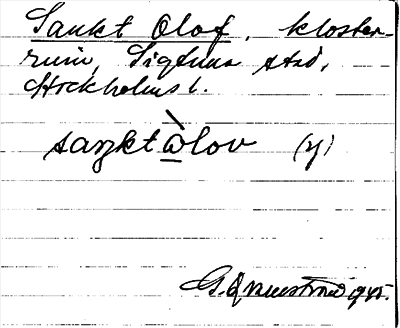 Sankt Olof, kloster-
ruin, Sigtuna stad,
Stockholms l.
saŋkt ὼlov (y)
G. 1945.